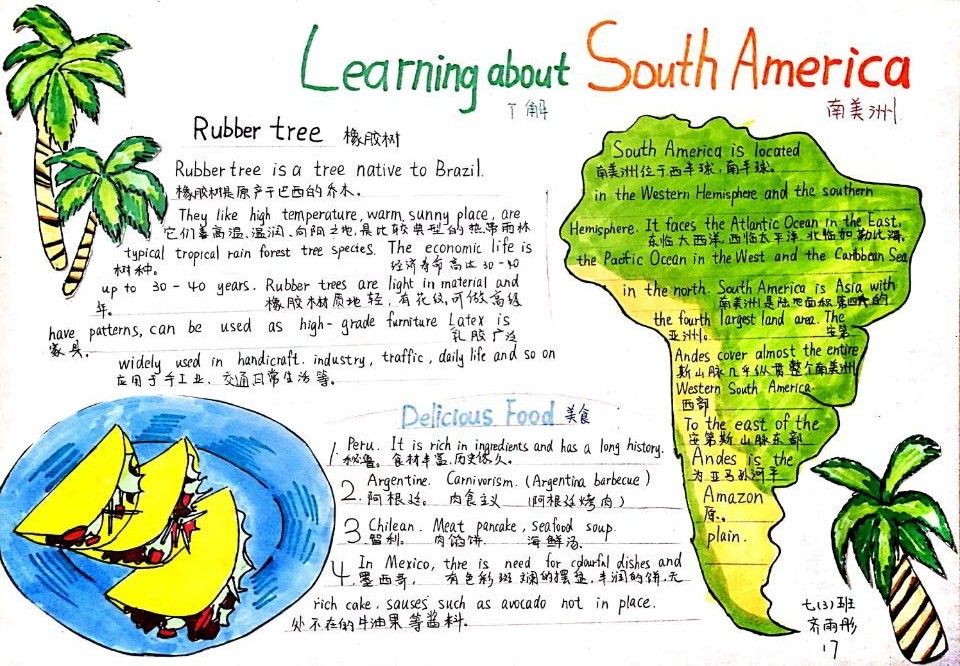 Learning about South America
了解
南美洲
Rubber tree 橡胶树
Rubber tree is a tree native to Brazil.
橡胶树是原产于巴西的乔木。
They like high temperature, warm, sunny place, are
它们喜高温、湿润、向阳之地,是比较典型的热带雨林
typical tropical rain forest tree species. The economic life is
树种。 经济寿命高达30-40
up to 30-40 years. Rubber trees are light in material and
年。 橡胶树材质地轻,有花纹,可做高级
have patterns, can be used as high-grade furniture Latex is
家具。 乳胶广泛
widely used in handicraft. industry, traffic, daily life and so on
应用于手工业、交通日常生活等。
South America is located
南美洲位于西半球,南半球。
in the Western Hemisphere and the southern
Hemisphere. It faces the Atlantic Ocean in the East,
东临大西洋,西临太平洋,北临加勒比海。
the Pacific Ocean in the West and the Caribbean Sea
in the north. South America is Asia with
南美洲是陆地面积第四大的
the fourth largest land area. The
亚洲。 安第
Andes cover almost the entire
斯山脉几乎纵贯整个南美洲
Western South America.
西部
To the east of the
安第斯山脉东部
Andes is the
为亚马孙河平
Amazon
原。
plain.
Delicious Food 美食
1. Peru. It is rich in ingredients and has a long history.
秘鲁。食材丰富,历史悠久。
2. Argentine. Carnivorism. (Argentina barbecue)
阿根廷。 肉食主义 (阿根廷烤肉)
3. Chilean. Meat pancake, seafood soup.
智利。 肉馅饼、 海鲜汤。
4. In Mexico, thre is need for colourful dishes and
墨西哥, 有色彩斑斓的摆盘,丰润的饼,无
rich cake, sauses such as avocado not in place.
处不在的牛油果等酱料。
七(3)班
齐雨彤
17